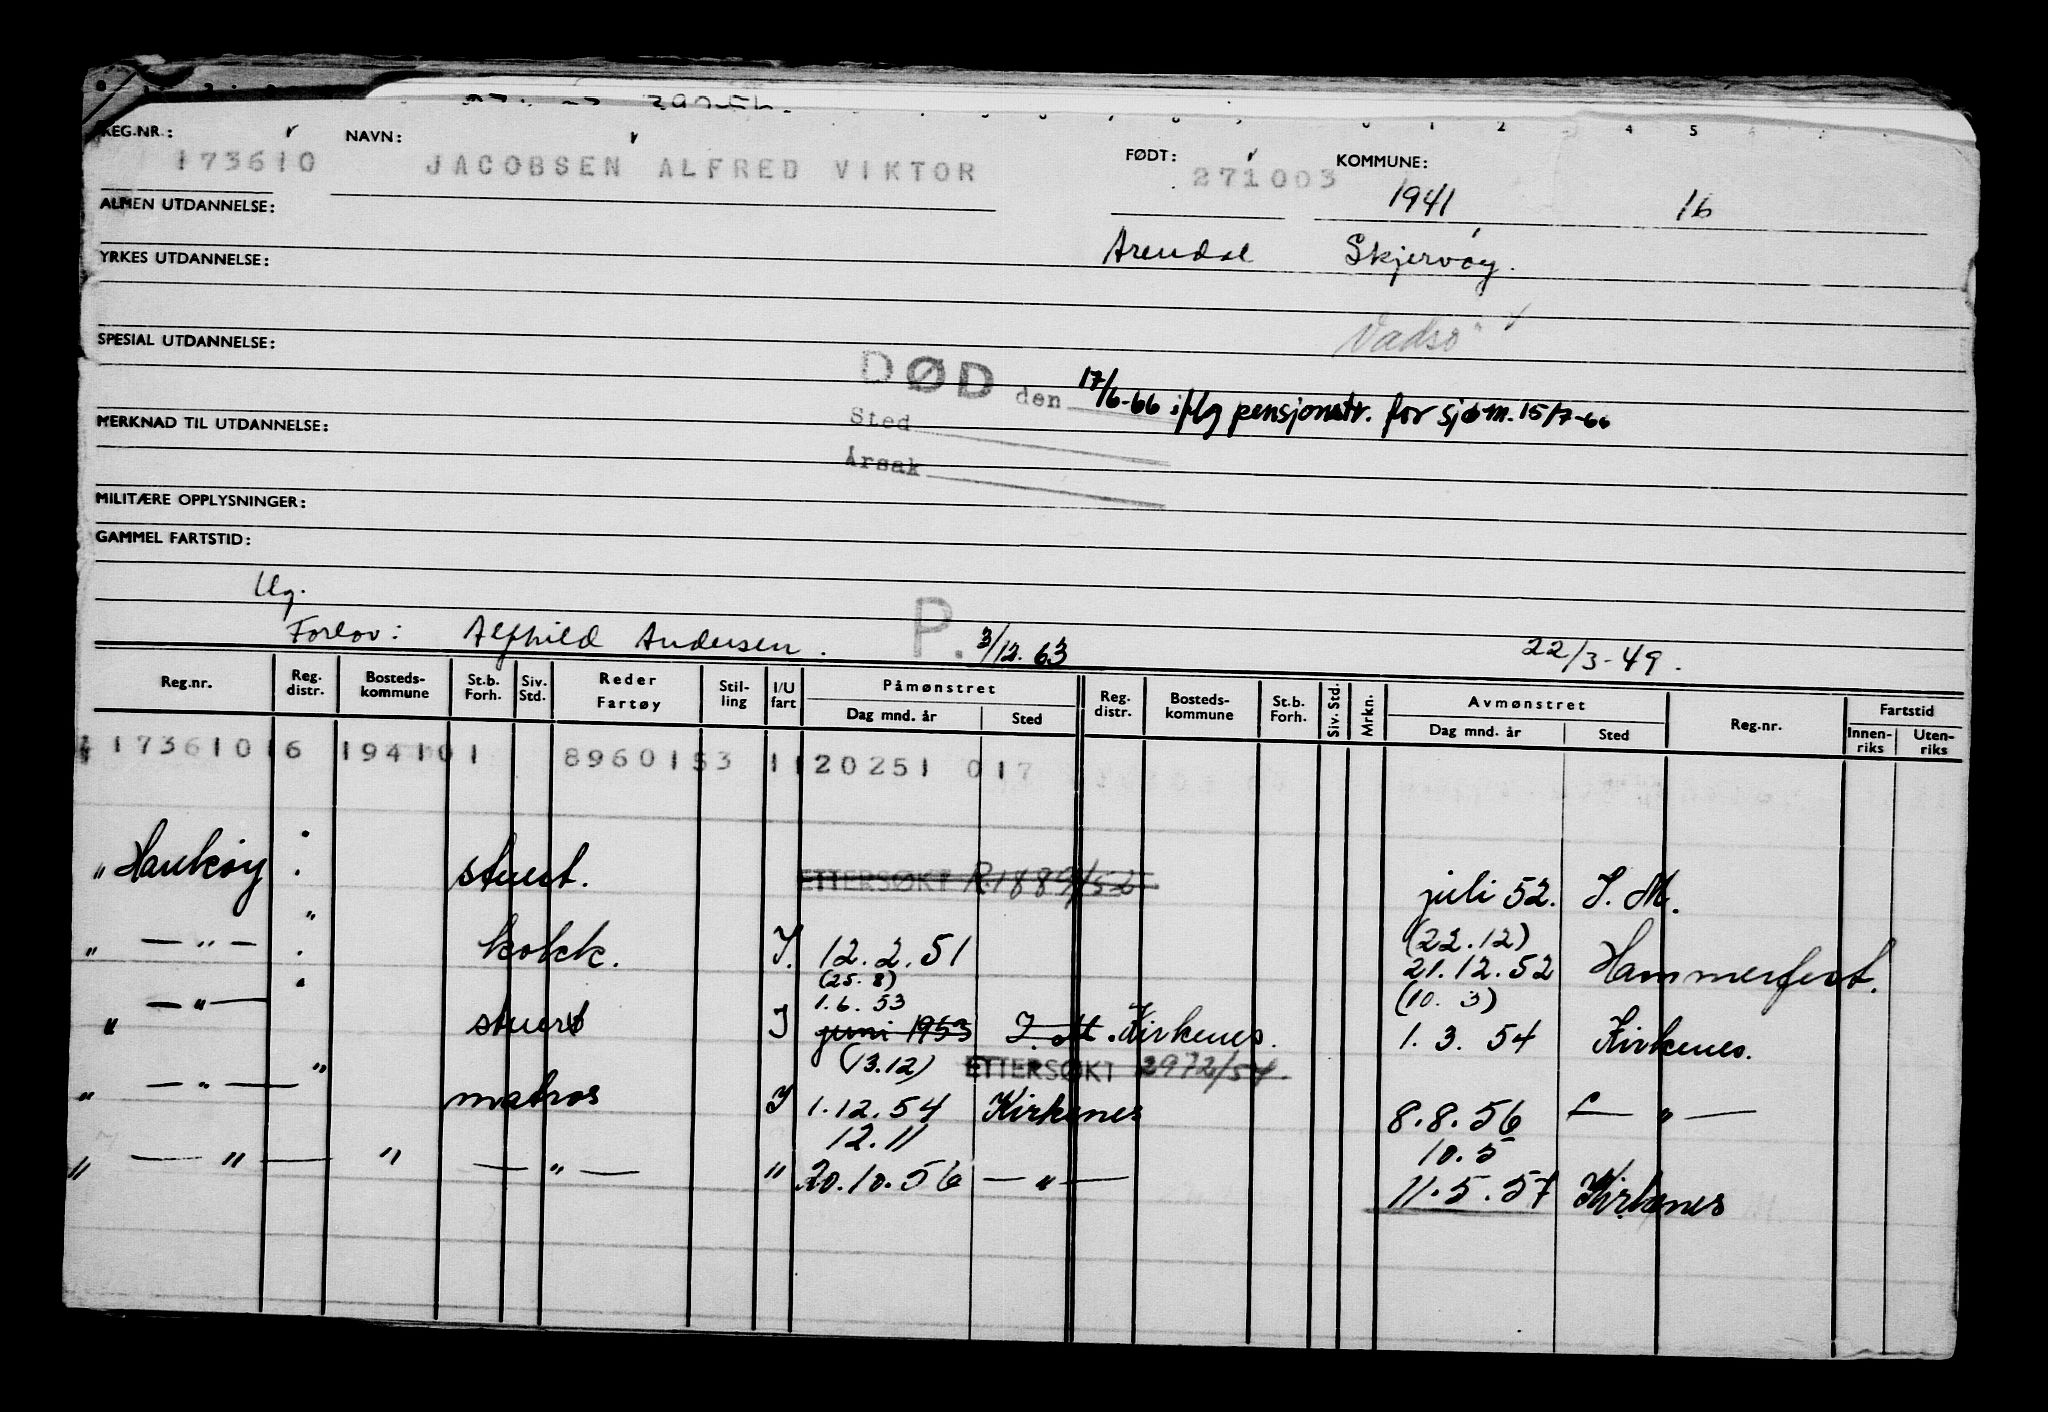 REG.NR.: NAVN: FØDT: KOMMUNE:
173610 JACOBSEN ALFRED VIKTOR 271003 1941 16
ALMEN UTDANNELSE:
Arendal Skjervøy.
YRKES UTDANNELSE:
Vadsø
SPESIAL UTDANNELSE:
DØD den 17/6-66 iflg pensjonstr. for sjøm. 15/7-66
Sted
MERKNAD TIL UTDANNELSE:
Årsak
MILITÆRE OPPLYSNINGER:
GAMMEL FARTSTID:
Ug.
Forlov: Alfhild Andersen. P. 3/12.63 22/3-49.
Reg.nr. Reg. distr. Bosteds-kommune St.b. Forh. Siv. Std. Reder Fartøy Stil-ling I/U fart Påmønstret Dag mnd. år Sted Reg. distr. Bosteds-kommune St.b. Forh. Siv. Std. Mrkn. Avmønstret Dag mnd. år Sted Reg.nr. Fartstid Innen-riks Uten-riks
173610 6 194101 8960153 1 120251 017
" Haukøy stuert. ETTERSØKT R.1889/52 juli 52. I. M.
(22.12)
" — " — kokk. I. 12.2.51 21.12.52 Hammerfest.
(25.8) (10.3)
1.6.53
" — " — stuert I juni 1953 I. M. Kirkenes. 1.3.54 Kirkenes.
(13.12) ETTERSØKT 2972/54
" — " — matros I 1.12.54 Kirkenes 8.8.56 — " —
12.11 10.5
" — " — " — " — " 20.10.56 — " — 11.5.57 Kirkenes